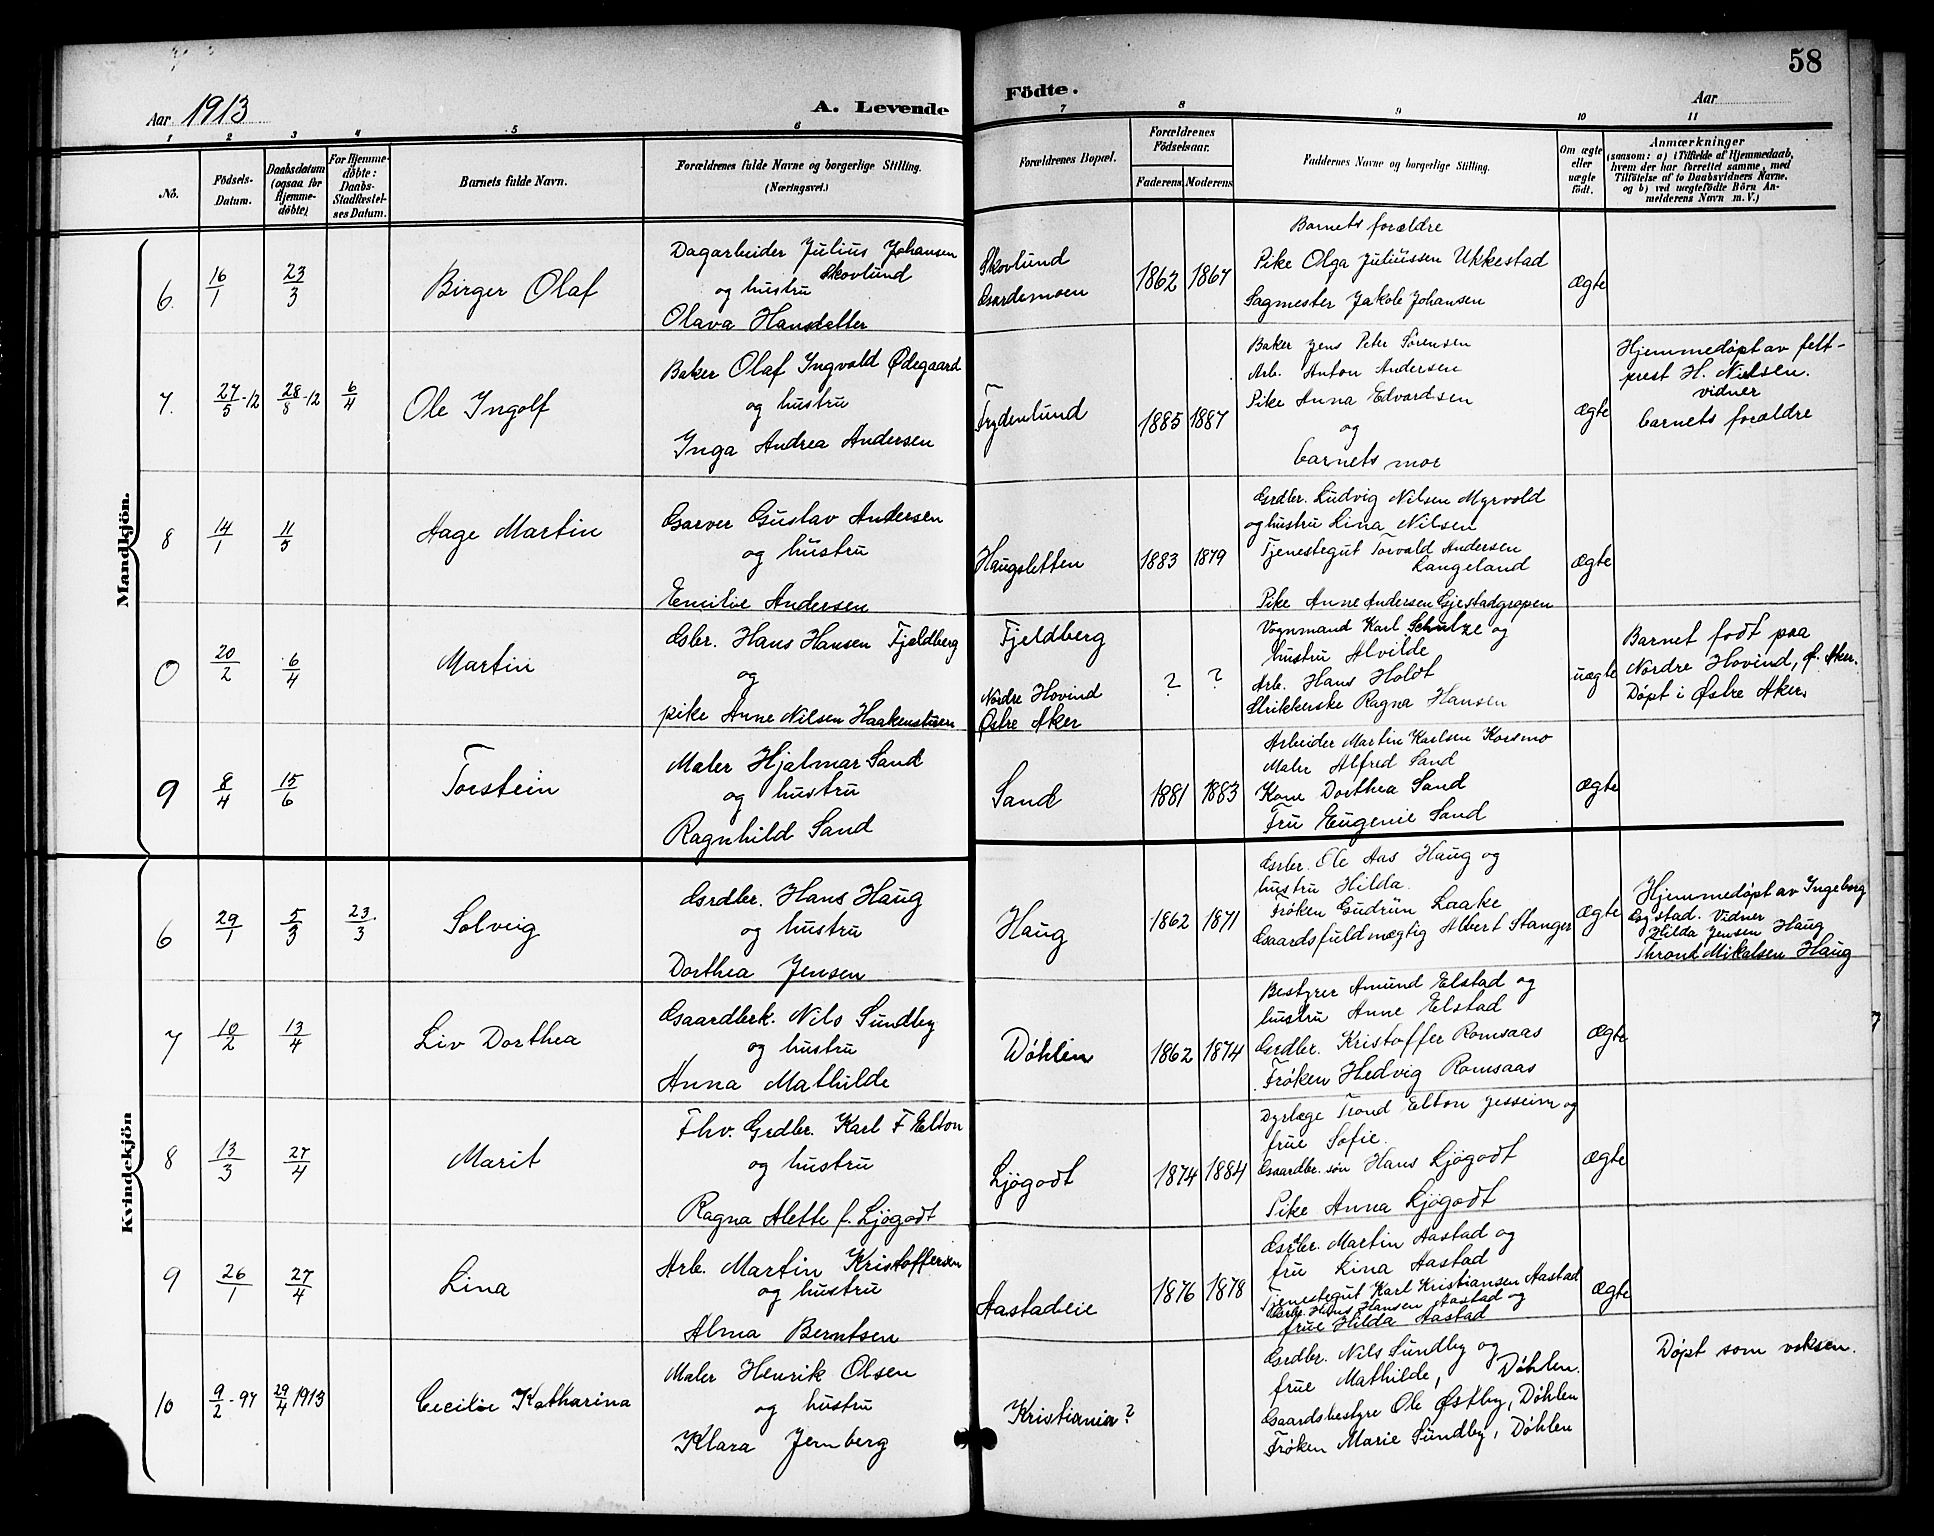 58
Aar 1913
A. Levende
Födte.
Aar
1 2 3 4 5 6 7 8 9 10 11
No.
Födsels-
Datum.
Daabsdatum
(ogsaa for
Hjemme-
døbte)
For Hjemme-
døbte:
Daabs-
Stadfæstel-
ses Datum.
Barnets fulde Navn.
Forældrenes fulde Navne og borgerlige Stilling.
(Næringsvei.)
Forældrenes Bopæl.
Forældrenes
Födselsaar.
Faderens Moderens
Faddernes Navne og borgerlige Stilling.
Om ægte
eller
uægte
födt.
Anmærkninger
(saasom: a) i Tilfælde af Hjemmedaab,
hvem der har forrettet samme, med
Tilføielse af to Daabsvidners Navne.
og b) ved uægtefödte Börn An-
melderens Navn m. V.)
Mandkjön.
6. 16/1 23/3
Birger Olaf
Dagarbeider Julius Johansen
Skovlund
og hustru
Olava Hansdatter
Skovlund
Gardemoen
1862 1867
Barnets forældre
Pike Olga Juliussen Ukkestad
Sagmester Jakob Johansen
Ægte
7. 27/5-12 28/8-12 6/4
Ole Ingolf
Baker Olaf Ingvald Ødegaard
og hustru
Inga Andrea Andersen
Frydenlund
1885 1887
Baker Jens Peter Sørensen
Arb. Anton Andersen
Pike Anna Edvardsen
og
barnets mor
Ægte
Hjemmedøpt av felt-
prest H. Nielsen.
vidner
barnets forældre
8 14/1 11/5
Aage Martin
Garver Gustav Andersen
og hustru
Emilie Andersen
Haugsletten
1883 1879
Grdbr. Ludvig Nilsen Myrvold
og hustru Lina Nilsen
Tjenestegut Torvald Andersen
Langeland
Pike Anne Andersen Gjestadgropen
Ægte
0 20/2 6/4
Martin
Gbr. Hans Hansen Fjeldberg
og
pike Anne Nilsen Haakenstuen
Fjeldberg
Nordre Hovind
Østre Aker
? ?
Vognmand Karl Schulze og
hustru Alvilde
Arb. Hans Holdt
Strikkerske Ragna Hansen
uægte
Barnet født paa
Nordre Hovind, Ø. Aker.
Døpt i Østre Aker.
9 8/4 15/6
Torstein
Maler Hjalmar Sand
og hustru
Ragnhild Sand
Sand
1881 1883
Arbeider Martin Karlsen Korsmo
Maler Alfred Sand
Kone Dorthea Sand
Fru Eugenie Sand
Ægte
Kvindekjön
6 29/1 5/3 23/3
Solveig
Grdbr. Hans Haug
og hustru
Dorthea Jensen
Haug
1862 1871
Grbr. Ole Aas Haug og
hustru Hilda.
Frøken Gudrun Laake
Gaardsfuldmægtig Albert Stanger
Ægte
Hjemmedøpt av Ingeborg
Gystad. Vidner
Hilda Jensen Haug
Thront Mikalsen Haug
7 10/2 13/4
Liv Dorthea
Gaardbrk. Nils Sundby
og hustru
Anna Mathilde
Døhlen
1862 1874
Bestyrer Amund Elstad og
hustru Anne Elstad
Grdbr. Kristoffer Romsaas
Frøken Hedvig Romsaas
Ægte
8 13/3 27/4
Marit
Fhv. Grdbr. Karl F Elton
og hustru
Ragna Alette f. Ljøgodt
Ljøgodt
1874 1884
Dyrlæge Trond Elton Jessheim og
frue Sofie.
Gaardbr. søn Hans Ljøgodt
Pike Anna Ljøgodt
Ægte
9 26/1 27/4
Lina
Arb. Martin Kristoffersen
og hustru
Alma Berntsen
Aastadeie
1876 1878
Grdbr. Martin Aastad og
fru Lina Aastad
Tjenestegut Karl Kristiansen Aastad
Hans Hansen Aastad og
frue Hilda Aastad
Ægte
10 9/2-97 29/4 1913
Cecilie Katharina
Maler Henrik Olsen
og hustru
Klara Jernberg
Kristiania?
Grdbr. Nils Sundby og
frue Mathilde, Døhlen.
Gaardsbestyre Ole Østby, Døhlen
Frøken Marie Sundby, Døhlen
Døpt som voksen.